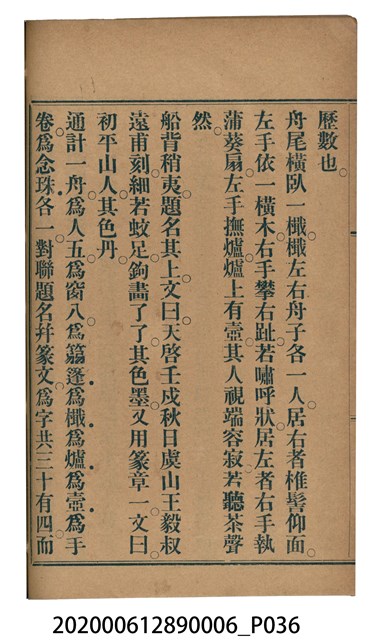 歷數也
舟尾橫臥一檝檝左右舟子各一人居右者椎髻仰面
左手依一橫木右手攀右趾若嘯呼狀居左者右手執
蒲葵扇左手撫爐爐上有壺其人視端容寂若聽茶聲
然
船背稍夷題名其上文曰天啓壬戌秋日虞山王毅叔
遠甫刻細若蚊足鉤畫了了其色墨又用篆章一文曰
初平山人其色丹
通計一舟爲人五爲窗八爲篛篷爲檝爲爐爲壺爲手
卷爲念珠各一對聯題名并篆文爲字共三十有四而
202000612890006_P036